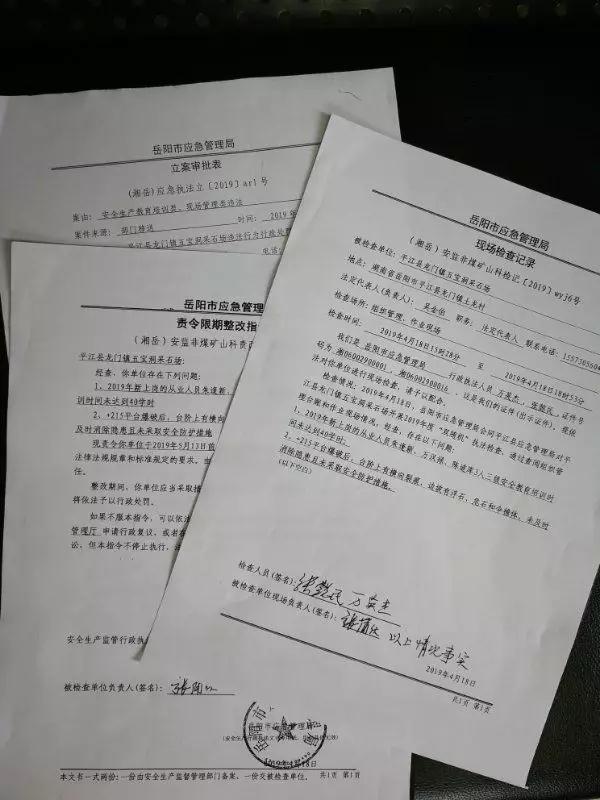 岳阳市应急管理局
立案审批表
（湘岳）应急执法立〔2019〕ar1号
案由： 安全生产教育培训类、现场管理类违法
案件来源： 部门移送 时间： 2019年
平江县龙门镇五宝润采石场违法行为行政处
电话
岳阳市应急管理
责令限期整改指
（湘岳）安监非煤矿山科责改
平江县龙门镇五宝润采石场：
经查，你单位存在下列问题：
1、2019年新上岗的从业人员朱逢新、
训时间未达到40学时
2、+215平台爆破后，台阶上有横向
及时消除隐患且未采取安全防护措施
现责令你单位于2019年5月13日前
法律法规规章和标准规定的要求。由
任。
整改期间，你单位应当采取措
将依法予以行政处罚。
如果不服本指令，可以依法
管理厅 申请行政复议，或者在
讼，但本指令不停止执行，法
安全生产监管行政执
被检查单位负责人(签名)：
岳阳市应急管理局
2019年4月18日
本文书一式两份：一份由安全生产监督管理部门备案，一份交被检查单位。 共1页 第1页
岳阳市应急管理局
现场检查记录
（湘岳）安监非煤矿山科检记〔2019〕wyj6号
被检查单位：平江县龙门镇五宝润采石场
地点： 湖南省岳阳市平江县龙门镇土龙村
法定代表人(负责人)： 吴金伯 职务： 法定代表人 联系电话：
检查场所：组织管理、作业现场
检查时间： 2019年4月18日15时28分 至 2019年4月18日18时53分
我们是 岳阳市应急管理局 行政执法人员 证件号
码为 湘0600290001、湘06002900016 ，这是我们的证件(出示证件)。现依
法对你单位进行现场检查，请予以配合。
检查情况：2019年4月18日，岳阳市应急管理局会同平江县应急管理局对平
江县龙门镇五宝润采石场开展2019年度“双随机”执法检查，通过查阅组织管
理台账和作业现场情况，经查，存在以下问题：
1、2019年新上岗的从业人员朱逢新、万沃湖、陈波萍3人三级安全教育培训时
间未达到40学时。
2、+215平台爆破后，台阶上有横向裂隙，边坡有浮石、危石和伞檐体，未及时
消除隐患且未采取安全防护措施。
(以下空白)
检查人员(签名)：
被检查单位现场负责人(签名)： 以上情况事实
2019年4月18日
共1页 第1页